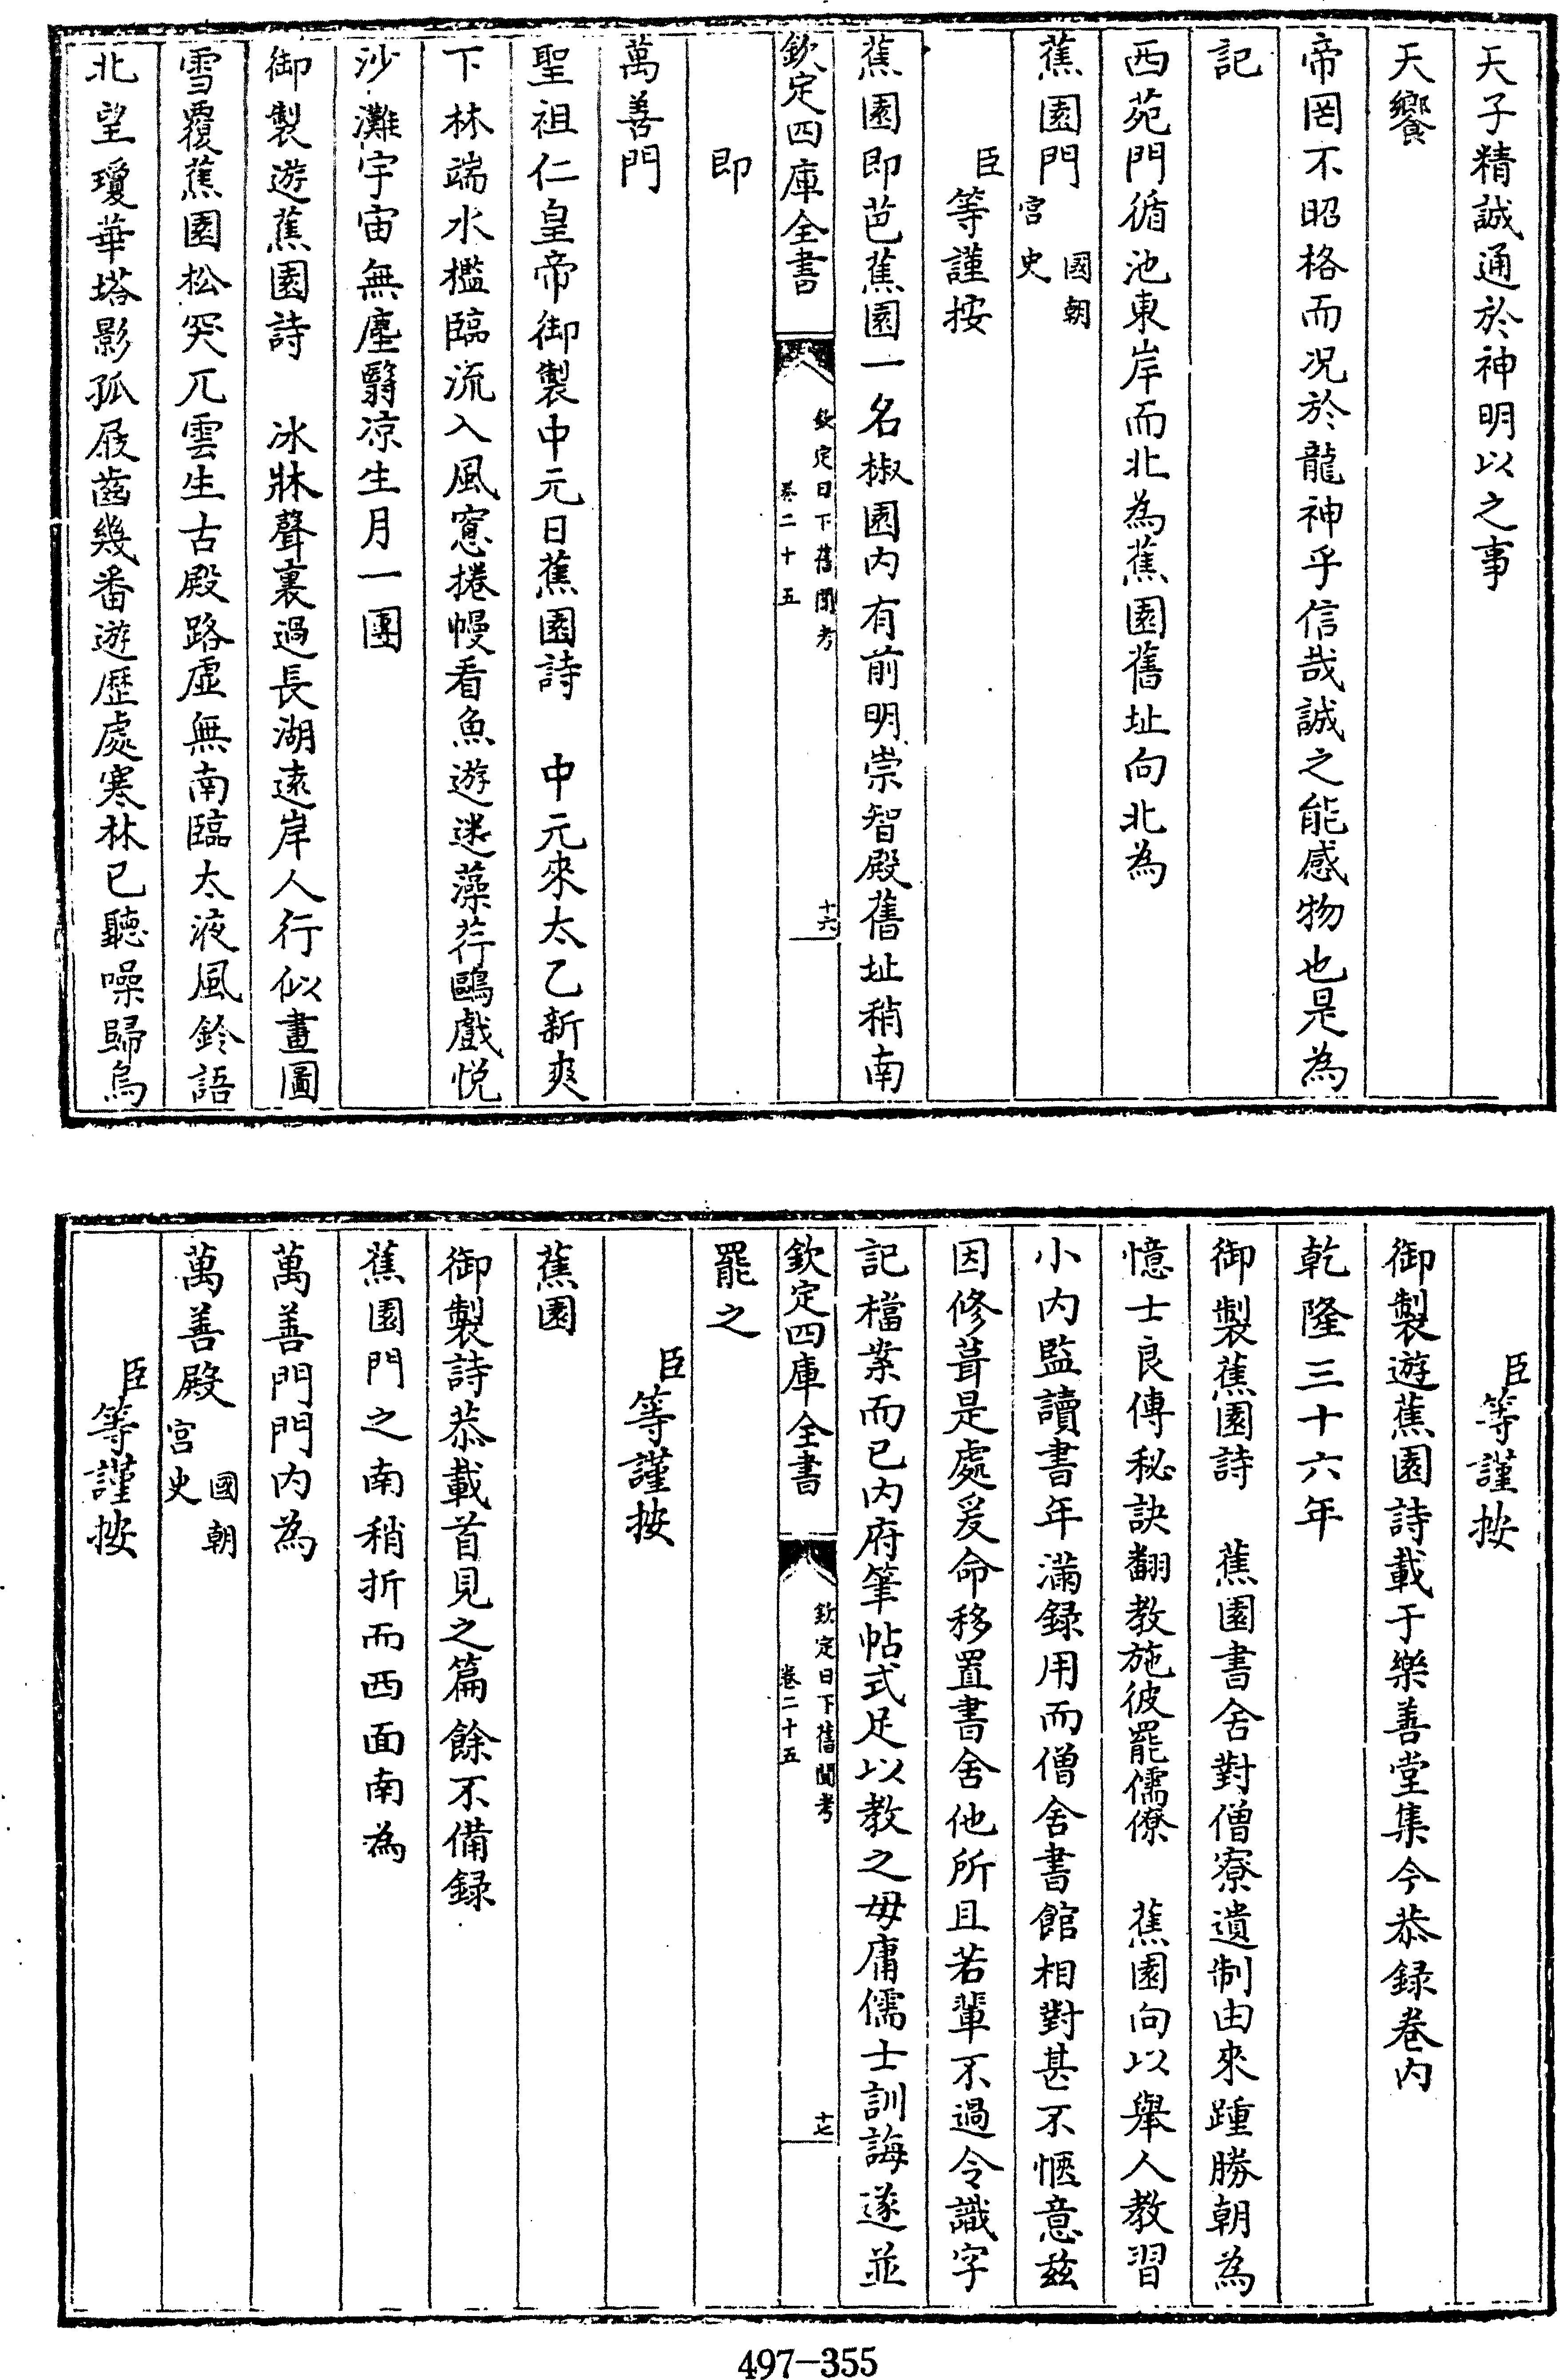 天子精誠通於神明以之事
天饗
帝罔不昭格而況於龍神乎信哉誠之能感物也是為
記
西苑門循池東岸而北為蕉園舊址向北為
蕉園門國朝宮史
臣等謹按
蕉園即芭蕉園一名椒園内有前明崇智殿舊址稍南
欽定四庫全書
欽定日下舊聞考
卷二十五
十六
即
萬善門
聖祖仁皇帝御製中元日蕉園詩　中元來太乙新爽
下林端水檻臨流入風窻捲幔看魚遊迷藻荇鷗戲悦
沙灘宇宙無塵翳凉生月一團
御製遊蕉園詩　冰牀聲裏過長湖遠岸人行似畫圖
雪覆蕉園松突兀雲生古殿路虛無南臨太液風鈴語
北望瓊華塔影孤屐齒幾番遊歷處寒林已聽噪歸烏
臣等謹按
御製遊蕉園詩載于樂善堂集今恭録卷内
乾隆三十六年
御製蕉園詩　蕉園書舍對僧寮遺制由來踵勝朝為
憶士良傳秘訣翻教施彼罷儒僚　蕉園向以舉人教習
小内監讀書年滿録用而僧舍書館相對甚不愜意兹
因修葺是處爰命移置書舍他所且若輩不過令識字
記檔案而已内府筆帖式足以教之毋庸儒士訓誨遂並
欽定四庫全書
欽定日下舊聞考
卷二十五
十七
罷之
臣等謹按
蕉園
御製詩恭載首見之篇餘不備録
蕉園門之南稍折而西面南為
萬善門門内為
萬善殿國朝宮史
臣等謹按
497-355